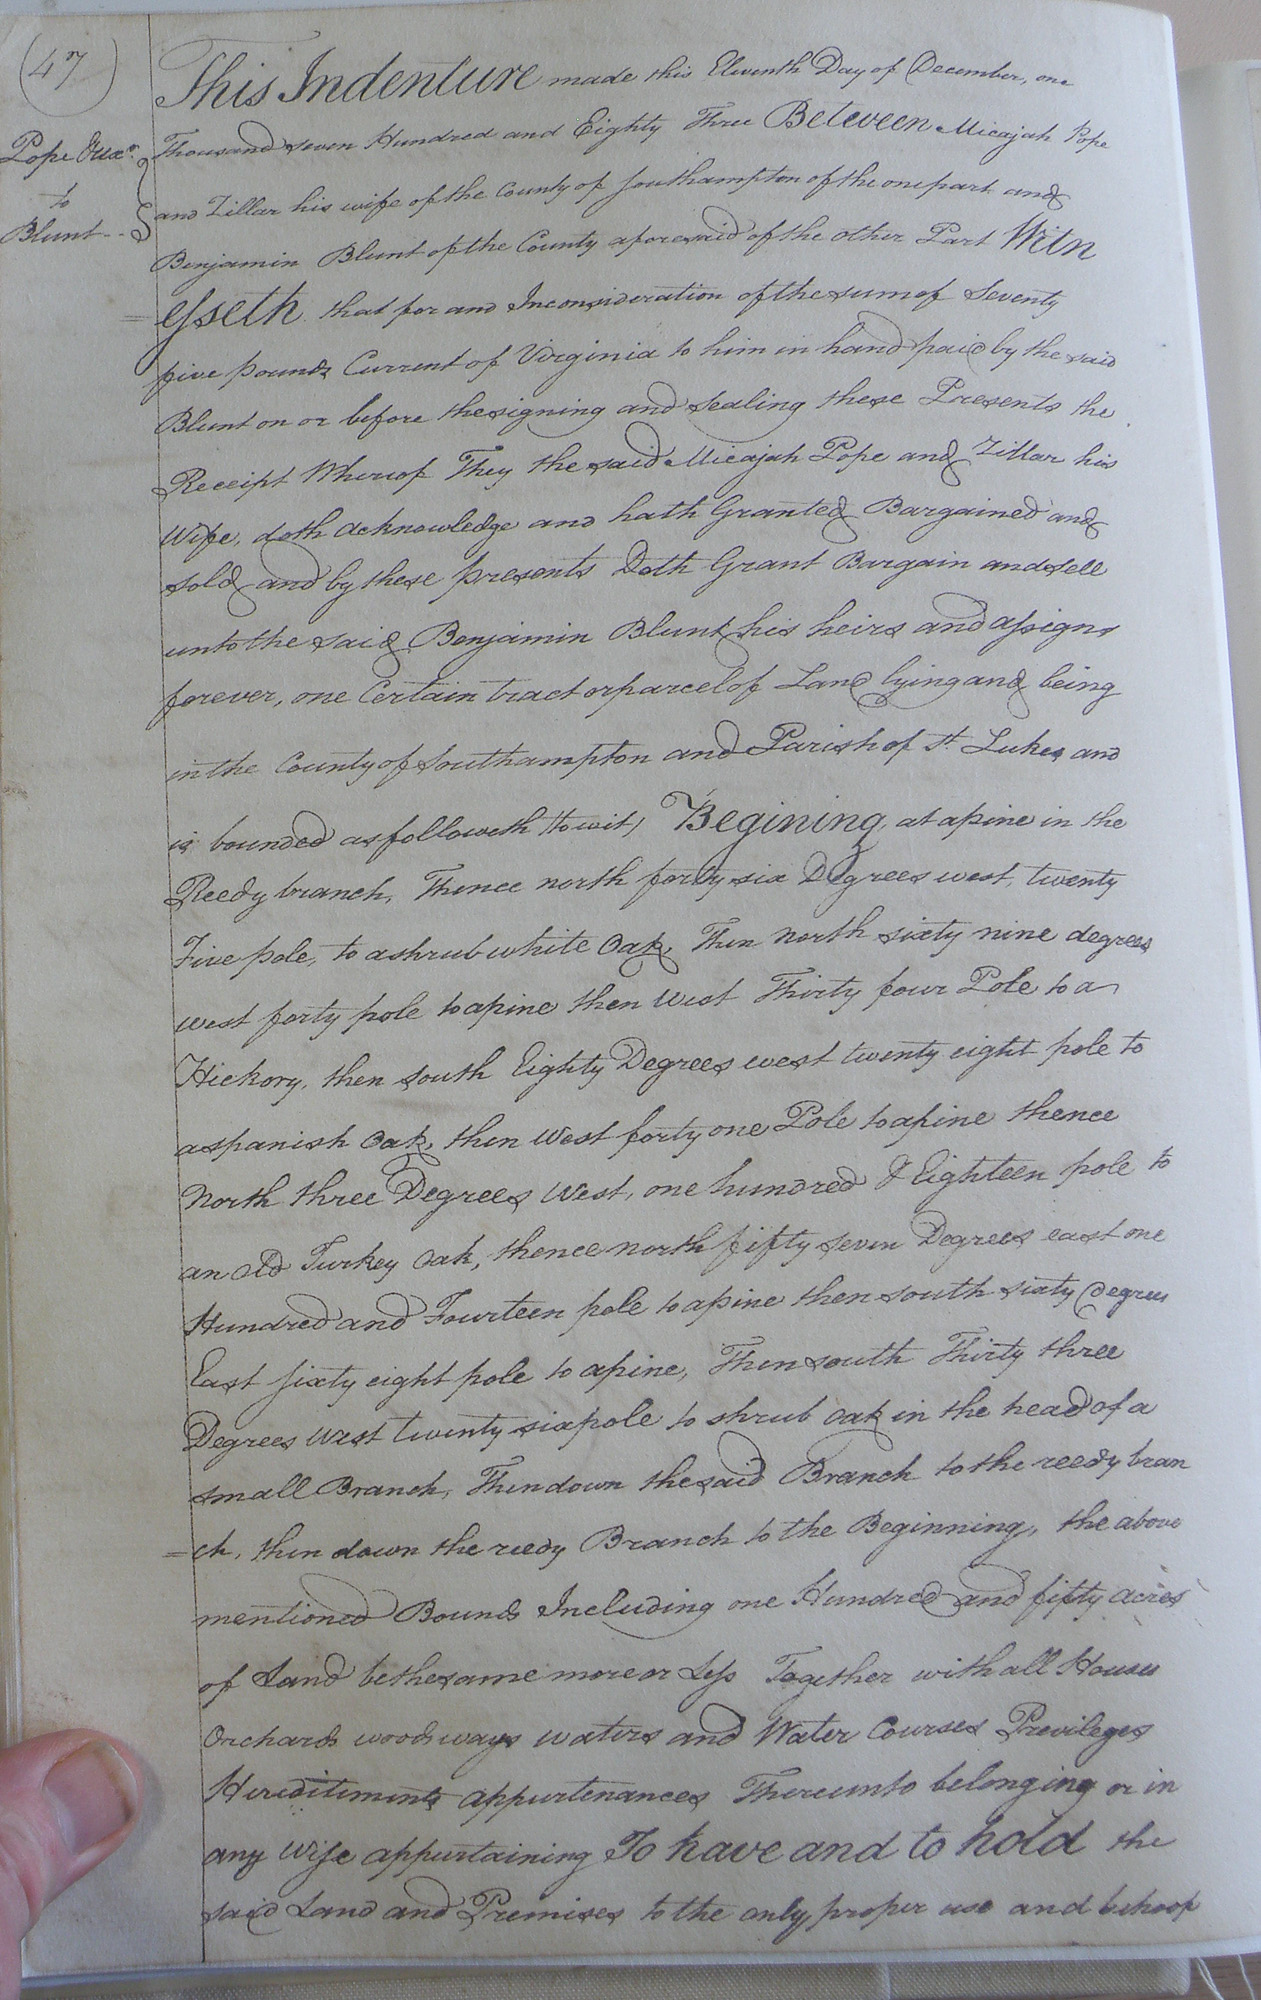 (47)
Pope & uxr.
to
Blunt
This Indenture made this Eleventh Day of December, one
Thousand seven Hundred and Eighty Three Between Micajah Pope
and Zillar his wife of the County of Southampton of the one part and
Benjamin Blunt of the County aforesaid of the other Part Witn
=esseth that for and Inconsideration of the sum of Seventy
five pounds Current of Virginia to him in hand paid by the said
Blunt on or before the signing and Sealing these Presents the
Receipt Whereof They the said Micajah Pope and Zillar his
Wife, doth acknowledge and hath Granted Bargained and
sold and by these presents Doth Grant Bargain and sell
unto the said Benjamin Blunt his heirs and assigns
forever, one Certain tract or parcel of Land lying and being
in the County of Southampton and Parish of St. Lukes and
is bounded as followeth (towit) Begining at a pine in the
Reedy branch, Thence north forty six Degrees west, twenty
Five pole, to a shrub white Oak, Then North sixty nine degrees
west forty pole to a pine then West Thirty four Pole to a
Hickory, then south Eighty Degrees west twenty eight pole to
a spanish Oak, then West forty one Pole to a pine thence
North three Degrees West, one hundred & Eighteen pole to
an old Turkey Oak, thence north fifty seven Degrees east one
Hundred and Fourteen pole to a pine then south sixty Degrees
East sixty eight pole to a pine, Then south Thirty three
Degrees West twenty six pole to shrub Oak in the head of a
small Branch, Then down the said Branch to the reedy bran
=ch, then down the reedy Branch to the Beginning, the above
mentioned Bounds Including one Hundred and fifty acres
of Land be the same more or Less Together with all Houses
Orchards woods ways waters and Water Courses Previleges
Hereditiments appurtenances Thereunto belonging or in
any Wise appurtaining To have and to hold the
said Land and Premises to the only proper use and behoof